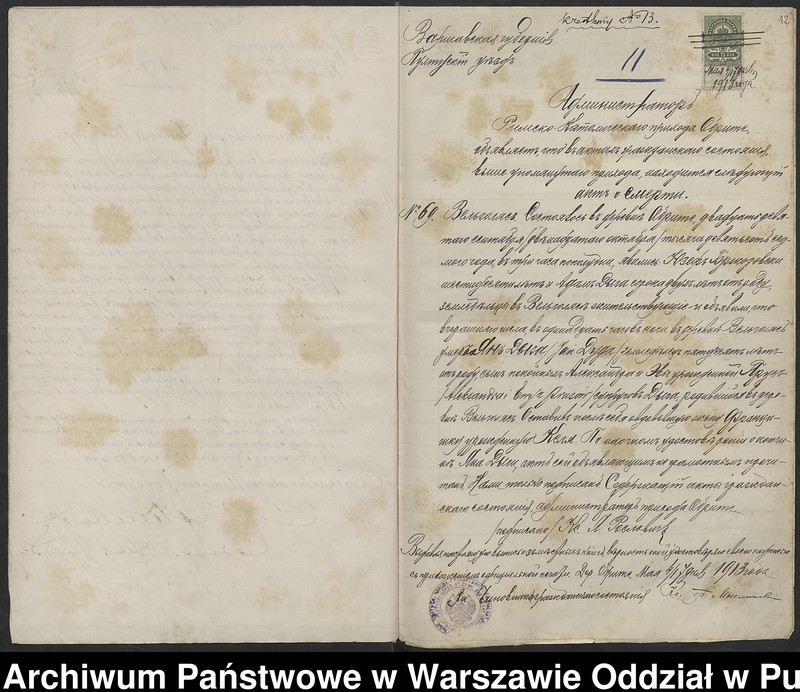 12
№ 13.
Варшавская губернія
Пултускій уѣздъ
11
Мая 4/17 дня
1913 года
Администраторъ
Римско-Католическаго прихода Обрыте,
объявляетъ, что въ актахъ гражданскаго состоянія,
выше упомянутаго прихода, находится слѣдующій
актъ о смерти.
№ 60. Вельголясъ. Состоялось въ деревнѣ Обрыте, двадцать девя-
таго сентября /двѣнадцатаго октября/ тысяча девятьсотъ седь-
мого года, въ три часа пополудни, явились Юзефъ
шестидесяти лѣтъ и Адамъ Дыга сорока двухъ лѣтъ отъ роду,
земледѣльцы въ Вельголясѣ жительствующіе и объявили, что
вчерашняго числа, въ одиннадцать часовъ ночи въ деревнѣ Вельголясъ
умеръ Янъ Дыга /Jan Dyga/ земледѣлецъ, пятьдесятъ лѣтъ
отъ роду, сынъ покойныхъ Александра и Евы урожденной
/Aleksandra i Ewy / супруговъ Дыга, родившійся въ дере-
внѣ Вельголясъ. Оставивъ послѣ себя овдовѣвшую жену Франциш-
ку урожденную По наочномъ удостовѣреніи о кончи-
нѣ Яна Дыги, актъ сей объявляющимъ неграмотнымъ прочи-
танъ, Нами только подписанъ. Содержащій акты граждан-
скаго состоянія, администраторъ прихода Обрыте
/подписано/ Кс. Л.
Вѣрность настоящей выписи съ подлинникомъ удостовѣряю своею подписью
съ приложеніемъ оффиціальной печати. Дер. Обрыте, Мая 4/17 дня 1913 года
Чиновникъ гражданскаго состоянія Кс.
Archiwum Państwowe w Warszawie Oddział w Pu